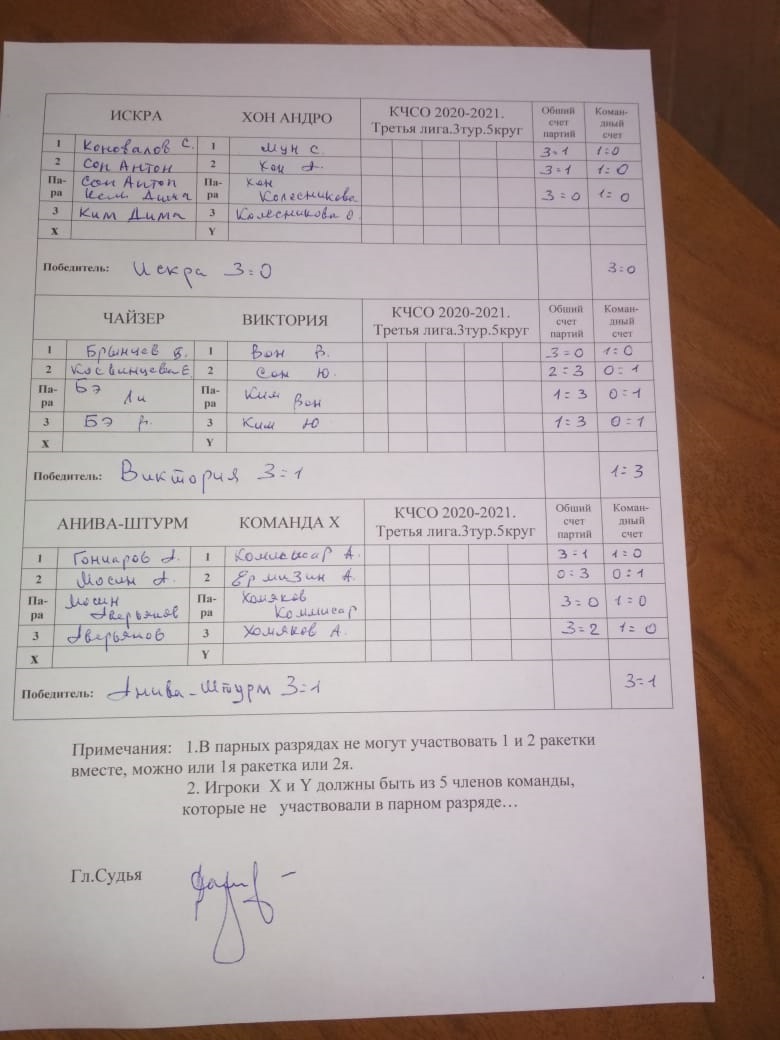 ИСКРА ХОН АНДРО КЧСО 2020-2021. Третья лига.3тур.5круг Общий счет партий Коман-дный счет
1 Коновалов С. 1 Мун С. 3=1 1=0
2 Сон Антон 2 Хон А. 3=1 1=0
Па-ра Сон Антон Ким Дима Па-ра Хон Колесникова 3=0 1=0
3 Ким Дима 3 Колесникова О.
X Y
Победитель: Искра 3=0 3=0
ЧАЙЗЕР ВИКТОРИЯ КЧСО 2020-2021. Третья лига.3тур.5круг Общий счет партий Коман-дный счет
1 Брынцев В. 1 Вон В. 3=0 1=0
2 Косвинцева Е. 2 Сон Ю. 2=3 0=1
Па-ра Бэ Ли Па-ра Ким Вон 1=3 0=1
3 Бэ 3 Ким Ю 1=3 0=1
X Y
Победитель: Виктория 3=1 1=3
АНИВА-ШТУРМ КОМАНДА X КЧСО 2020-2021. Третья лига.3тур.5круг Общий счет партий Коман-дный счет
1 Гончаров А. 1 Коммисар А. 3=1 1=0
2 Мосин А. 2 Ермизин А. 0=3 0=1
Па-ра Мосин Аверьянов Па-ра Хомяков Коммисар 3=0 1=0
3 Аверьянов 3 Хомяков А. 3=2 1=0
X Y
Победитель: Анива-Штурм 3=1 3=1
Примечания: 1.В парных разрядах не могут участвовать 1 и 2 ракетки
вместе, можно или 1я ракетка или 2я.
2. Игроки X и Y должны быть из 5 членов команды,
которые не участвовали в парном разряде…
Гл.Судья